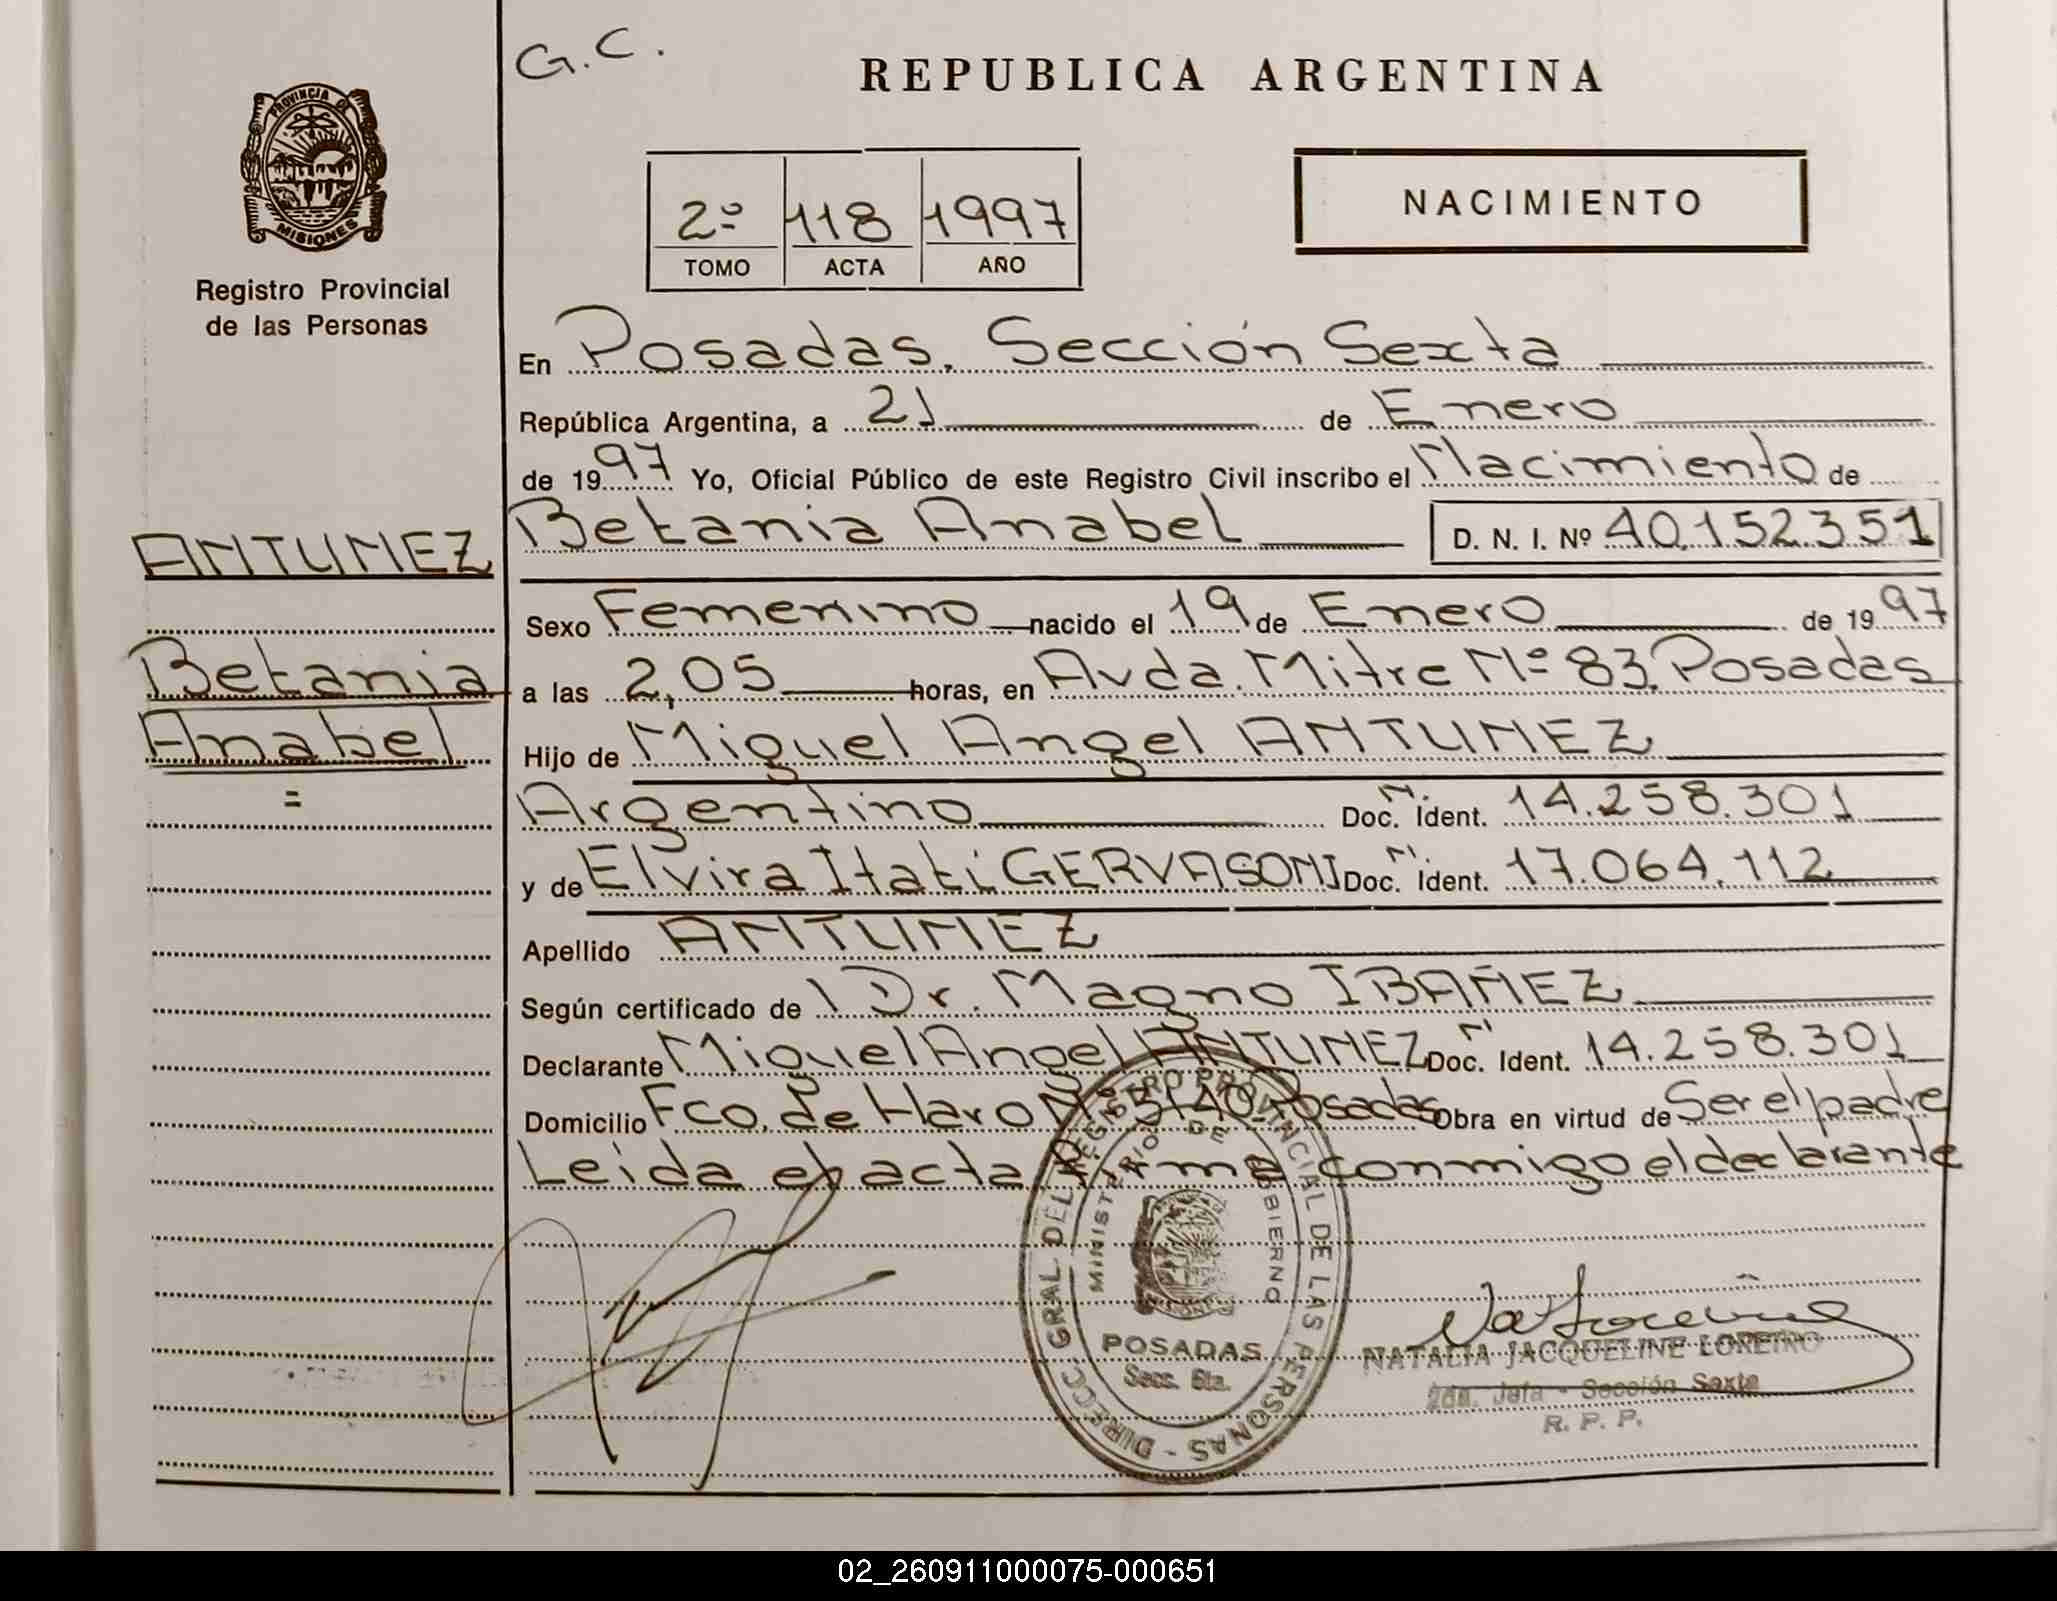 G.C.
REPUBLICA ARGENTINA
PROVINCIA DE
MISIONES
Registro Provincial
de las Personas
2º 118 1997
TOMO ACTA AÑO
NACIMIENTO
En Posadas, Sección Sexta
República Argentina, a 21 de Enero
de 1997 Yo, Oficial Público de este Registro Civil inscribo el Nacimiento de
ANTUNEZ
Betania Anabel D. N. I. Nº 40.152.351
Sexo Femenino nacido el 19 de Enero de 1997
Betania
a las 2,05 horas, en Avda. Mitre Nº 83, Posadas
Anabel
Hijo de Miguel Angel ANTUNEZ
=
Argentino Doc. N. Ident. 14.258.301
y de Elvira Itatí GERVASONI Doc. N. Ident. 17.064.112
Apellido ANTUNEZ
Según certificado de Dr. Magno IBAÑEZ
Declarante Miguel Angel ANTUNEZ Doc. N. Ident. 14.258.301
Domicilio Fco. de Haro Nº 5140 Posadas Obra en virtud de Ser el padre
Leida el acta firma conmigo el declarante
DIRECC. GRAL. DEL REGISTRO PROVINCIAL DE LAS PERSONAS -
MINISTERIO DE GOBIERNO
POSADAS
Secc. 6ta.
NATALIA JACQUELINE LOREIRO
2da. Jefa - Sección Sexta
R. P. P.
02_260911000075-000651